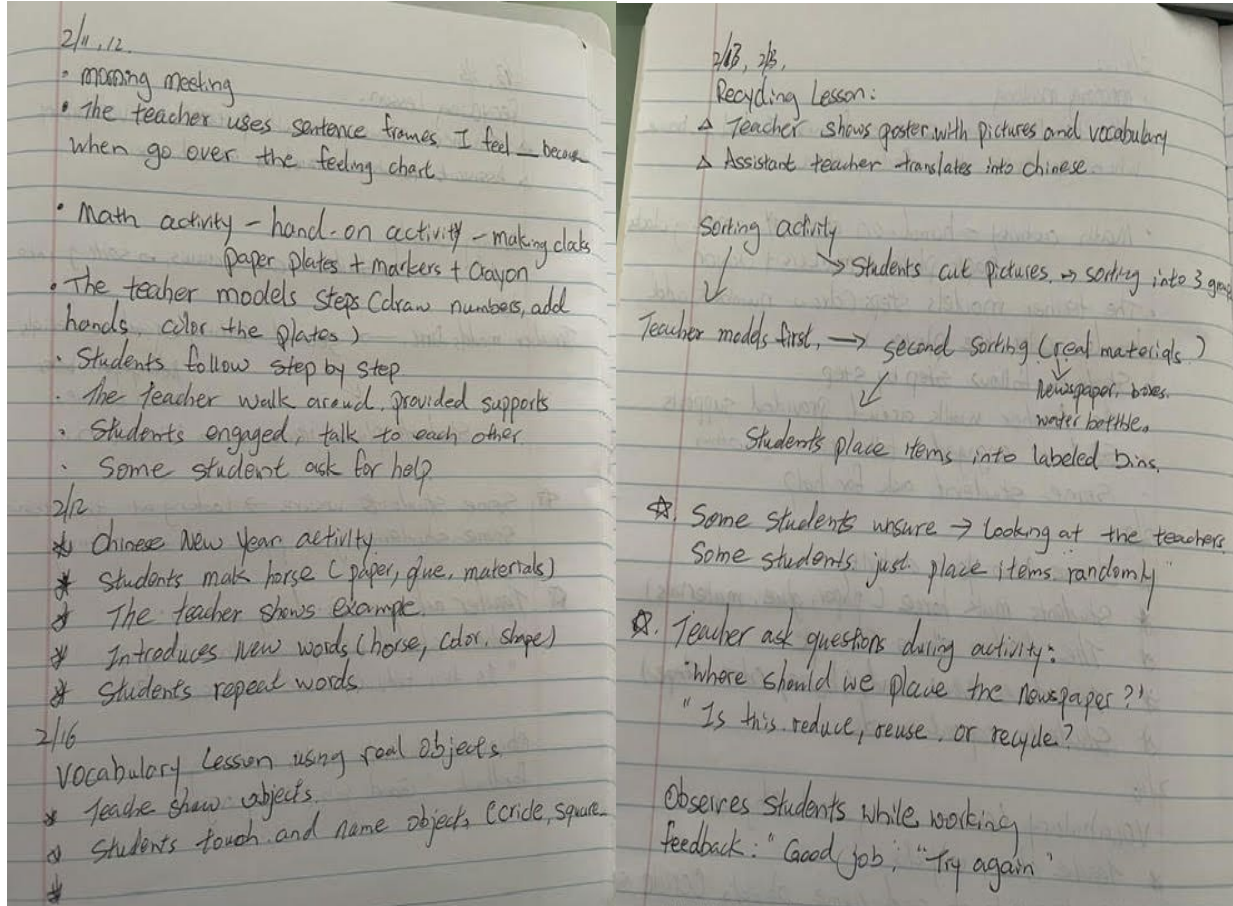 2/11, 12.
• morning meeting
• The teacher uses sentence frames I feel __ because
when go over the feeling chart.
• Math activity - hand-on activity - making clocks
paper plates + markers + crayon
• The teaher models steps (draw numbers, add
hands, color the plates)
• Students follow step by step
• The teacher walk around, provided supports
• Students engaged, talk to each other
• Some student ask for help
2/12
* Chinese New Year activity
* Students mak horse (paper, glue, materials)
* The teacher shows example.
* Introduces New words (horse, color, shape)
* Students repeat words.
2/16
Vocabulary Lesson using real objects.
* Teache show objects.
* Students touch and name objects (cricle, square
*
2/13, 2/13,
Recycling Lesson:
△ Teacher shows poster with pictures and vocabulary
△ Assistant teacher translates into chinese
Sorting activity
↓ → Students cut pictures. → sorting into 3
Teacher models first, → second sorting (real materials)
↓ Newspaper, boxes.
water botthle,
Students place items into labeled bins.
☆. Some Students unsure → Looking at the teachers.
Some students just place items randomly"
☆. Teacher ask questions during activity:
"Where should we place the newspaper?"
"Is this reduce, reuse, or recycle?
Observes students while working
feedback: "Good job", "Try again"